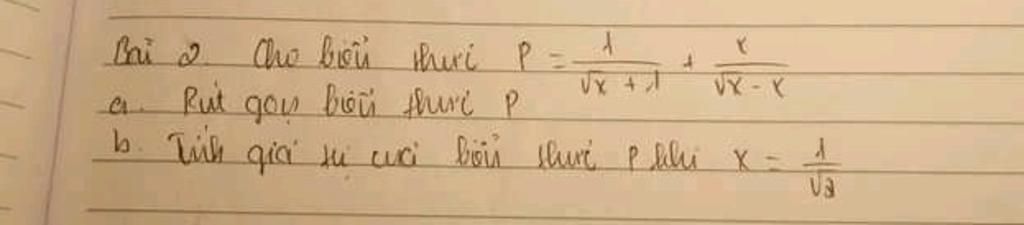 Bài 2. Cho biểu thức P = 1/(√x + 1) + x/(√x - x)
a. Rút gọn biểu thức P
b. Tính giá trị của biểu thức P khi x = 1/√2